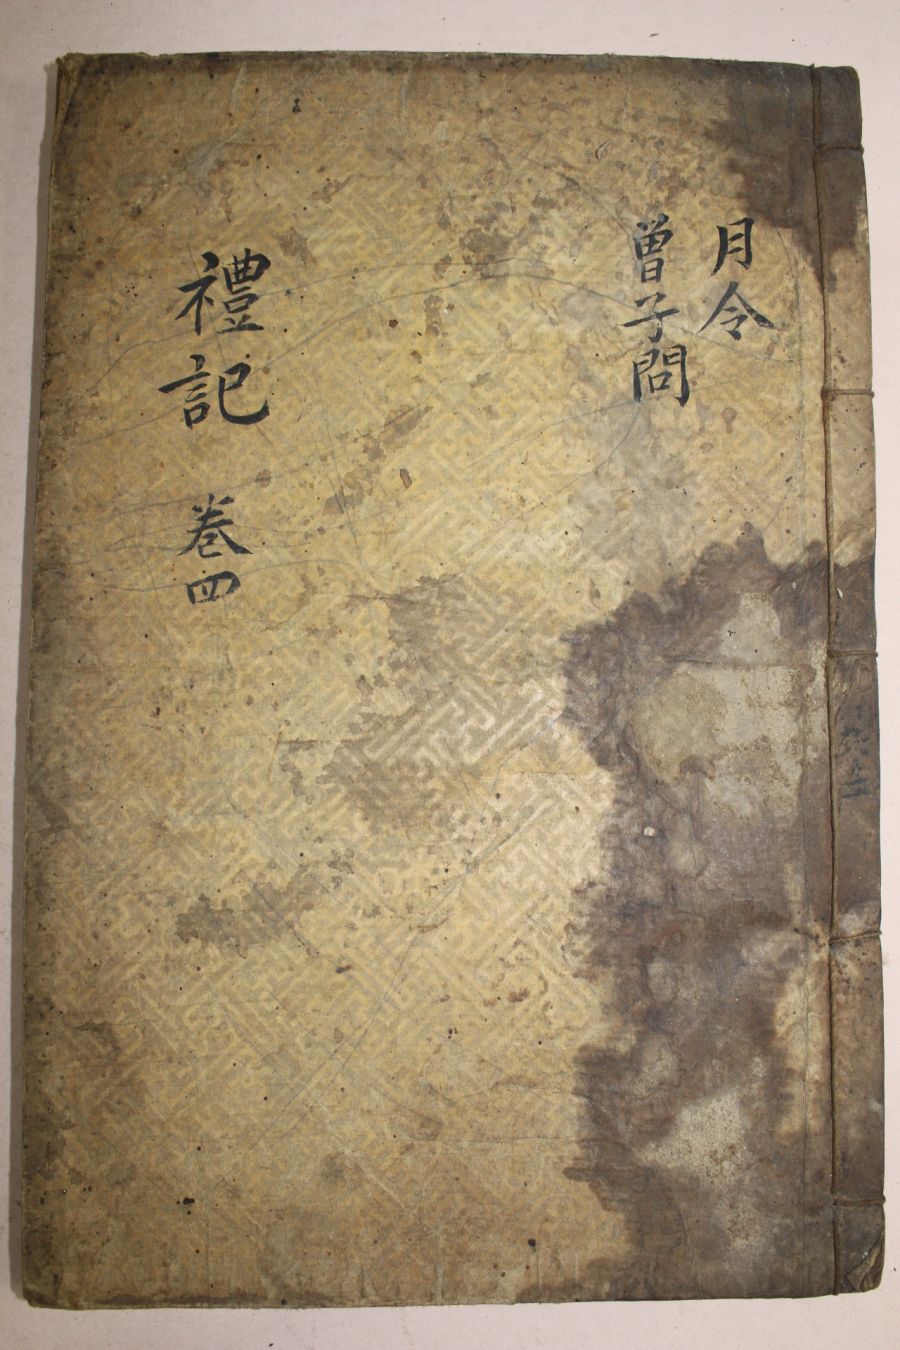 月令
曾子問
禮記 卷四